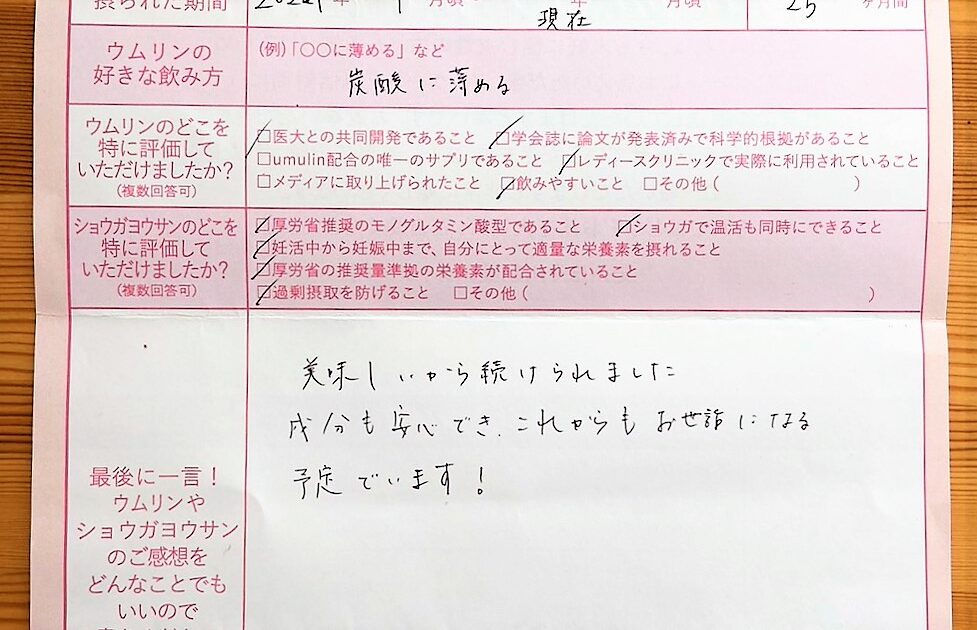 摂られた期間 年 月頃 現在 年 月頃 25 ヶ月間
ウムリンの
好きな飲み方
(例)「〇〇に薄める」など
炭酸に薄める
ウムリンのどこを
特に評価して
いただけましたか?
(複数回答可)
☑医大との共同開発であること ☑学会誌に論文が発表済みで科学的根拠があること
□umulin配合の唯一のサプリであること ☑レディースクリニックで実際に利用されていること
□メディアに取り上げられたこと ☑飲みやすいこと □その他( )
ショウガヨウサンのどこを
特に評価して
いただけましたか?
(複数回答可)
☑厚労省推奨のモノグルタミン酸型であること ☑ショウガで温活も同時にできること
☑妊活中から妊娠中まで、自分にとって適量な栄養素を摂れること
☑厚労省の推奨量準拠の栄養素が配合されていること
☑過剰摂取を防げること □その他( )
最後に一言!
ウムリンや
ショウガヨウサン
のご感想を
どんなことでも
いいので
美味しいから続けられました
成分も安心でき、これからもお世話になる
予定でいます!